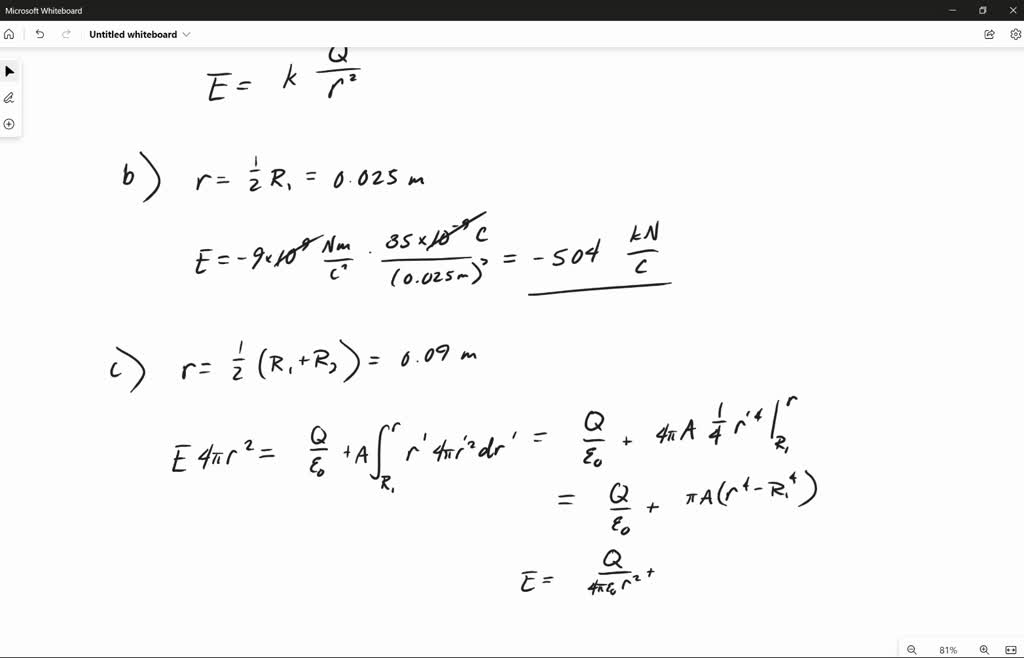 Microsoft Whiteboard
Untitled whiteboard
E = k Q/r²
b) r = 1/2 R₁ = 0.025 m
E = -9×10⁹ Nm/C² · 35×10⁻⁹ C/(0.025m)² = -504 kN/C
c) r = 1/2 (R₁+R₂) = 0.09 m
E 4πr² = Q/ε₀ + A ∫_R₁^r r' 4πr'² dr' = Q/ε₀ + 4πA 1/4 r'⁴ |_R₁^r
= Q/ε₀ + πA(r⁴ - R₁⁴)
E = Q/4πε₀r² +
81%